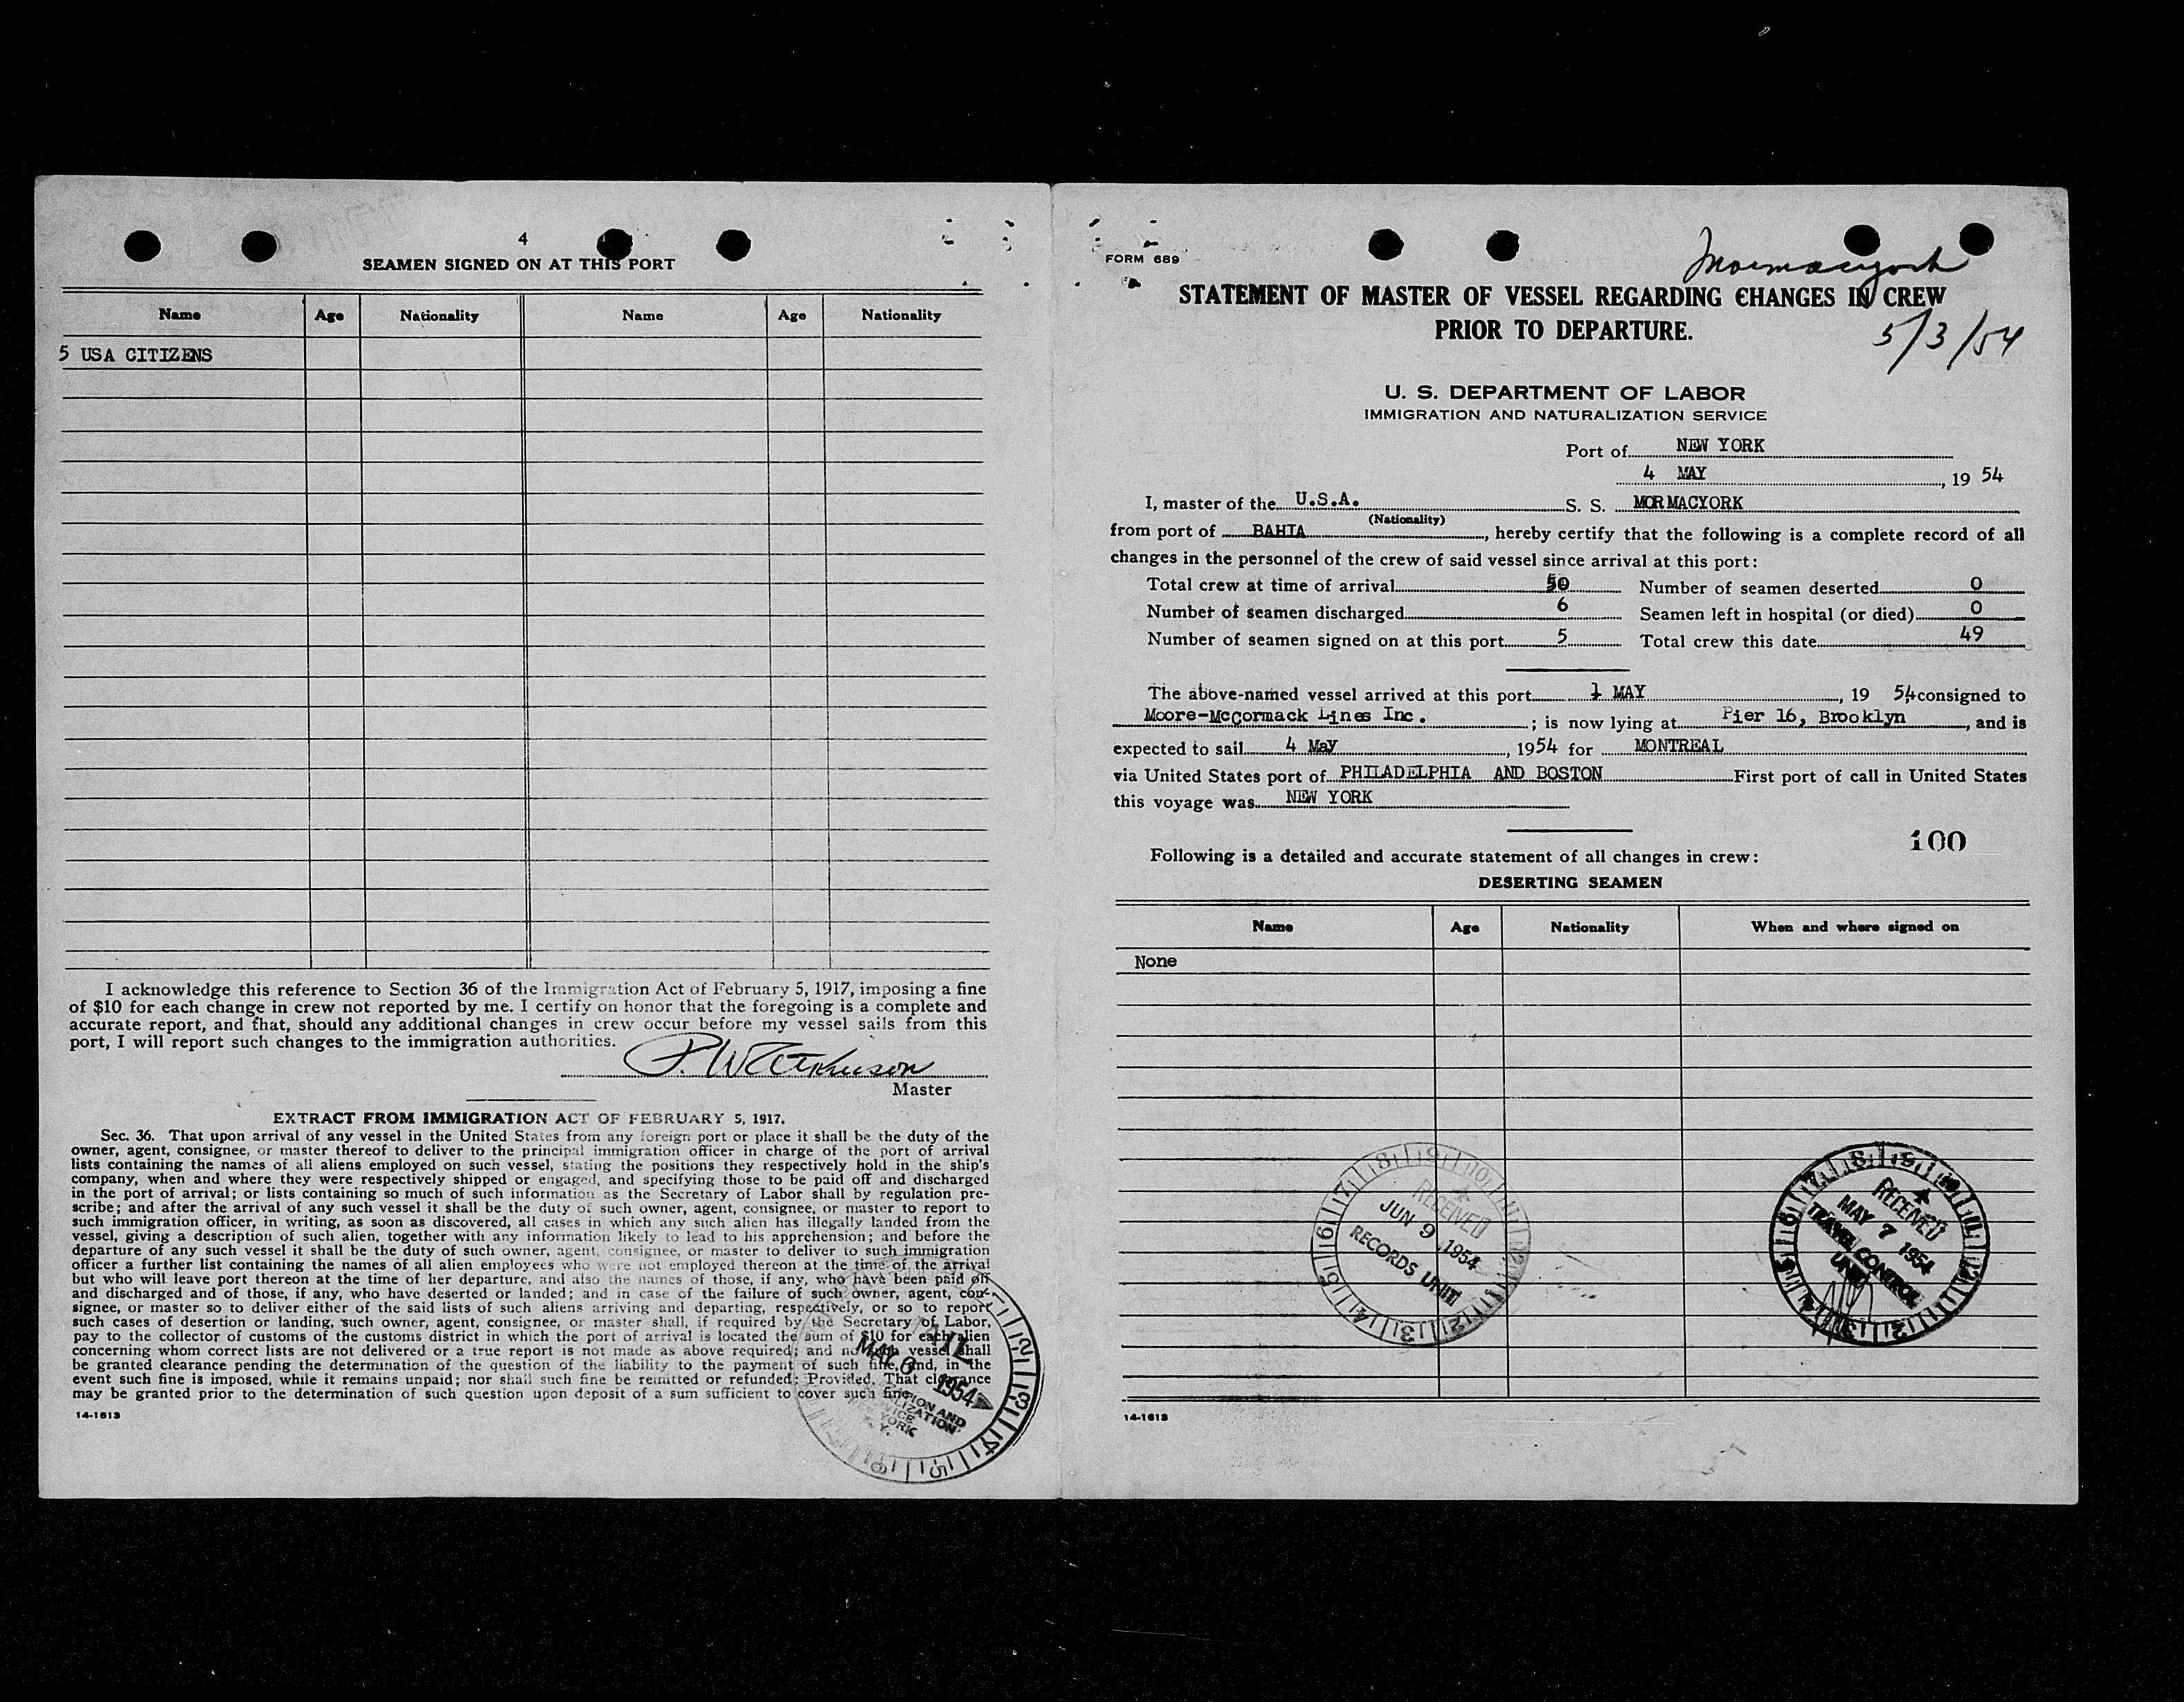 4
SEAMEN SIGNED ON AT THIS PORT
Name Age Nationality Name Age Nationality
5 USA CITIZENS
I acknowledge this reference to Section 36 of the Immigration Act of February 5, 1917, imposing a fine
of $10 for each change in crew not reported by me. I certify on honor that the foregoing is a complete and
accurate report, and that, should any additional changes in crew occur before my vessel sails from this
port, I will report such changes to the immigration authorities.
Master
EXTRACT FROM IMMIGRATION ACT OF FEBRUARY 5, 1917.
Sec. 36. That upon arrival of any vessel in the United States from any foreign port or place it shall be the duty of the
owner, agent, consignee, or master thereof to deliver to the principal immigration officer in charge of the port of arrival
lists containing the names of all aliens employed on such vessel, stating the positions they respectively hold in the ship's
company, when and where they were respectively shipped or engaged, and specifying those to be paid off and discharged
in the port of arrival; or lists containing so much of such information as the Secretary of Labor shall by regulation pre-
scribe; and after the arrival of any such vessel it shall be the duty of such owner, agent, consignee, or master to report to
such immigration officer, in writing, as soon as discovered, all cases in which any such alien has illegally landed from the
vessel, giving a description of such alien, together with any information likely to lead to his apprehension; and before the
departure of any such vessel it shall be the duty of such owner, agent, consignee, or master to deliver to such immigration
officer a further list containing the names of all alien employees who were not employed thereon at the time of the arrival
but who will leave port thereon at the time of her departure, and also the names of those, if any, who have been paid off
and discharged and of those, if any, who have deserted or landed; and in case of the failure of such owner, agent, con-
signee, or master so to deliver either of the said lists of such aliens arriving and departing, respectively, or so to report
such cases of desertion or landing, such owner, agent, consignee, or master shall, if required by the Secretary of Labor,
pay to the collector of customs of the customs district in which the port of arrival is located the sum of $10 for each alien
concerning whom correct lists are not delivered or a true report is not made as above required; and no such vessel shall
be granted clearance pending the determination of the question of the liability to the payment of such fine, and, in the
event such fine is imposed, while it remains unpaid; nor shall such fine be remitted or refunded: Provided, That clearance
may be granted prior to the determination of such question upon deposit of a sum sufficient to cover such fine.
14-1613
MAIL
MAY 6 1954
FORM 689
Mormacyork
STATEMENT OF MASTER OF VESSEL REGARDING CHANGES IN CREW
PRIOR TO DEPARTURE.
5/3/54
U. S. DEPARTMENT OF LABOR
IMMIGRATION AND NATURALIZATION SERVICE
Port of NEW YORK
4 MAY, 19 54
I, master of the U.S.A. S. S. MORMACYORK
(Nationality)
from port of BAHIA, hereby certify that the following is a complete record of all
changes in the personnel of the crew of said vessel since arrival at this port:
Total crew at time of arrival 50 Number of seamen deserted 0
Number of seamen discharged 6 Seamen left in hospital (or died) 0
Number of seamen signed on at this port 5 Total crew this date 49
The above-named vessel arrived at this port 1 MAY, 19 54, consigned to
Moore-McCormack Lines Inc.; is now lying at Pier 16, Brooklyn, and is
expected to sail 4 May, 1954 for MONTREAL
via United States port of PHILADELPHIA AND BOSTON First port of call in United States
this voyage was NEW YORK
100
Following is a detailed and accurate statement of all changes in crew:
DESERTING SEAMEN
Name Age Nationality When and where signed on
None
RECEIVED
JUN 9 1954
RECORDS UNIT
RECEIVED
MAY 7 1954
TRAVEL CONTROL
UNIT
14-1613